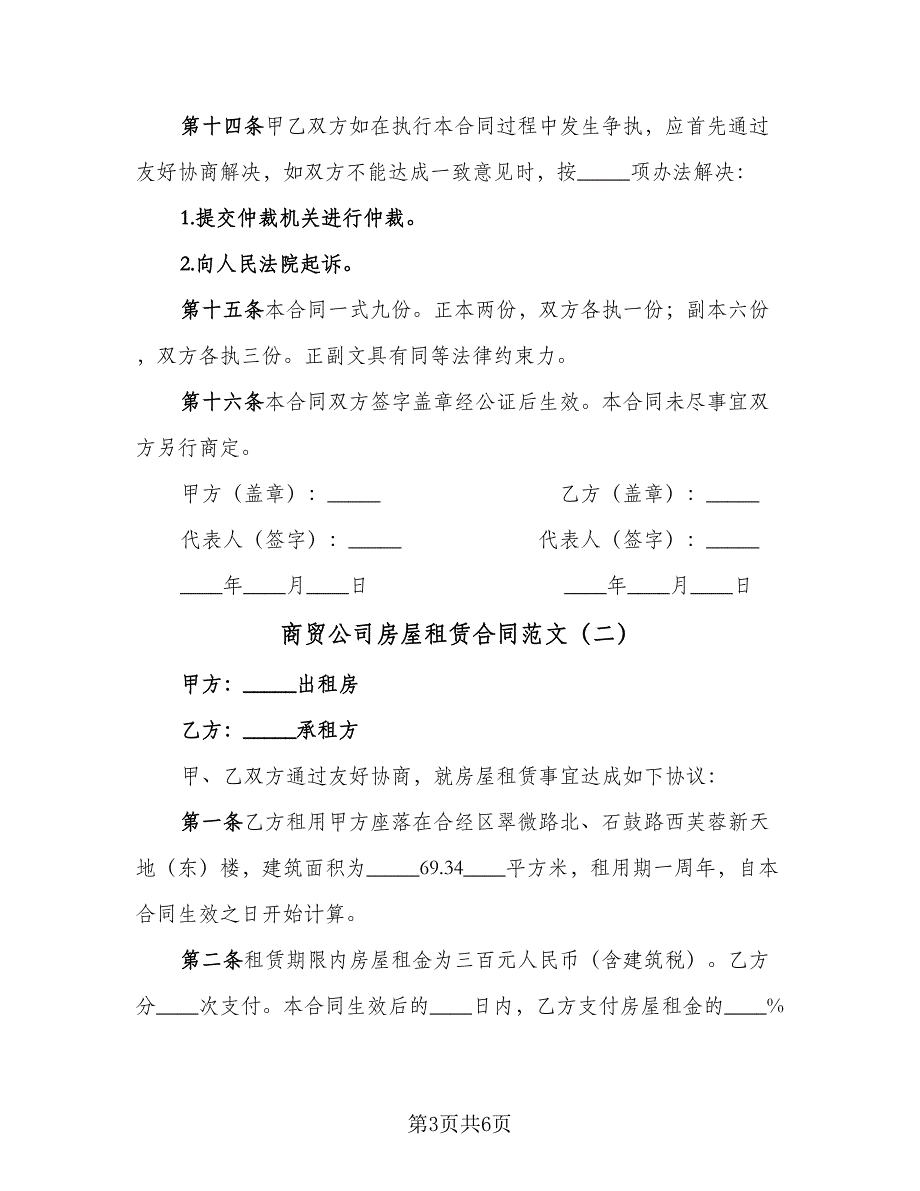 第十四条甲乙双方如在执行本合同过程中发生争执，应首先通过
友好协商解决，如双方不能达成一致意见时，按_____项办法解决：
1.提交仲裁机关进行仲裁。
2.向人民法院起诉。
第十五条本合同一式九份。正本两份，双方各执一份；副本六份
，双方各执三份。正副文具有同等法律约束力。
第十六条本合同双方签字盖章经公证后生效。本合同未尽事宜双
方另行商定。
甲方（盖章）：_____ 乙方（盖章）：_____
代表人（签字）：_____ 代表人（签字）：_____
____年____月____日 ____年____月____日
商贸公司房屋租赁合同范文（二）
甲方：_____出租房
乙方：_____承租方
甲、乙双方通过友好协商，就房屋租赁事宜达成如下协议：
第一条乙方租用甲方座落在合经区翠微路北、石鼓路西芙蓉新天
地（东）楼，建筑面积为_____69.34____平方米，租用期一周年，自本
合同生效之日开始计算。
第二条租赁期限内房屋租金为三百元人民币（含建筑税）。乙方
分____次支付。本合同生效后的____日内，乙方支付房屋租金的____%
第3页共6页